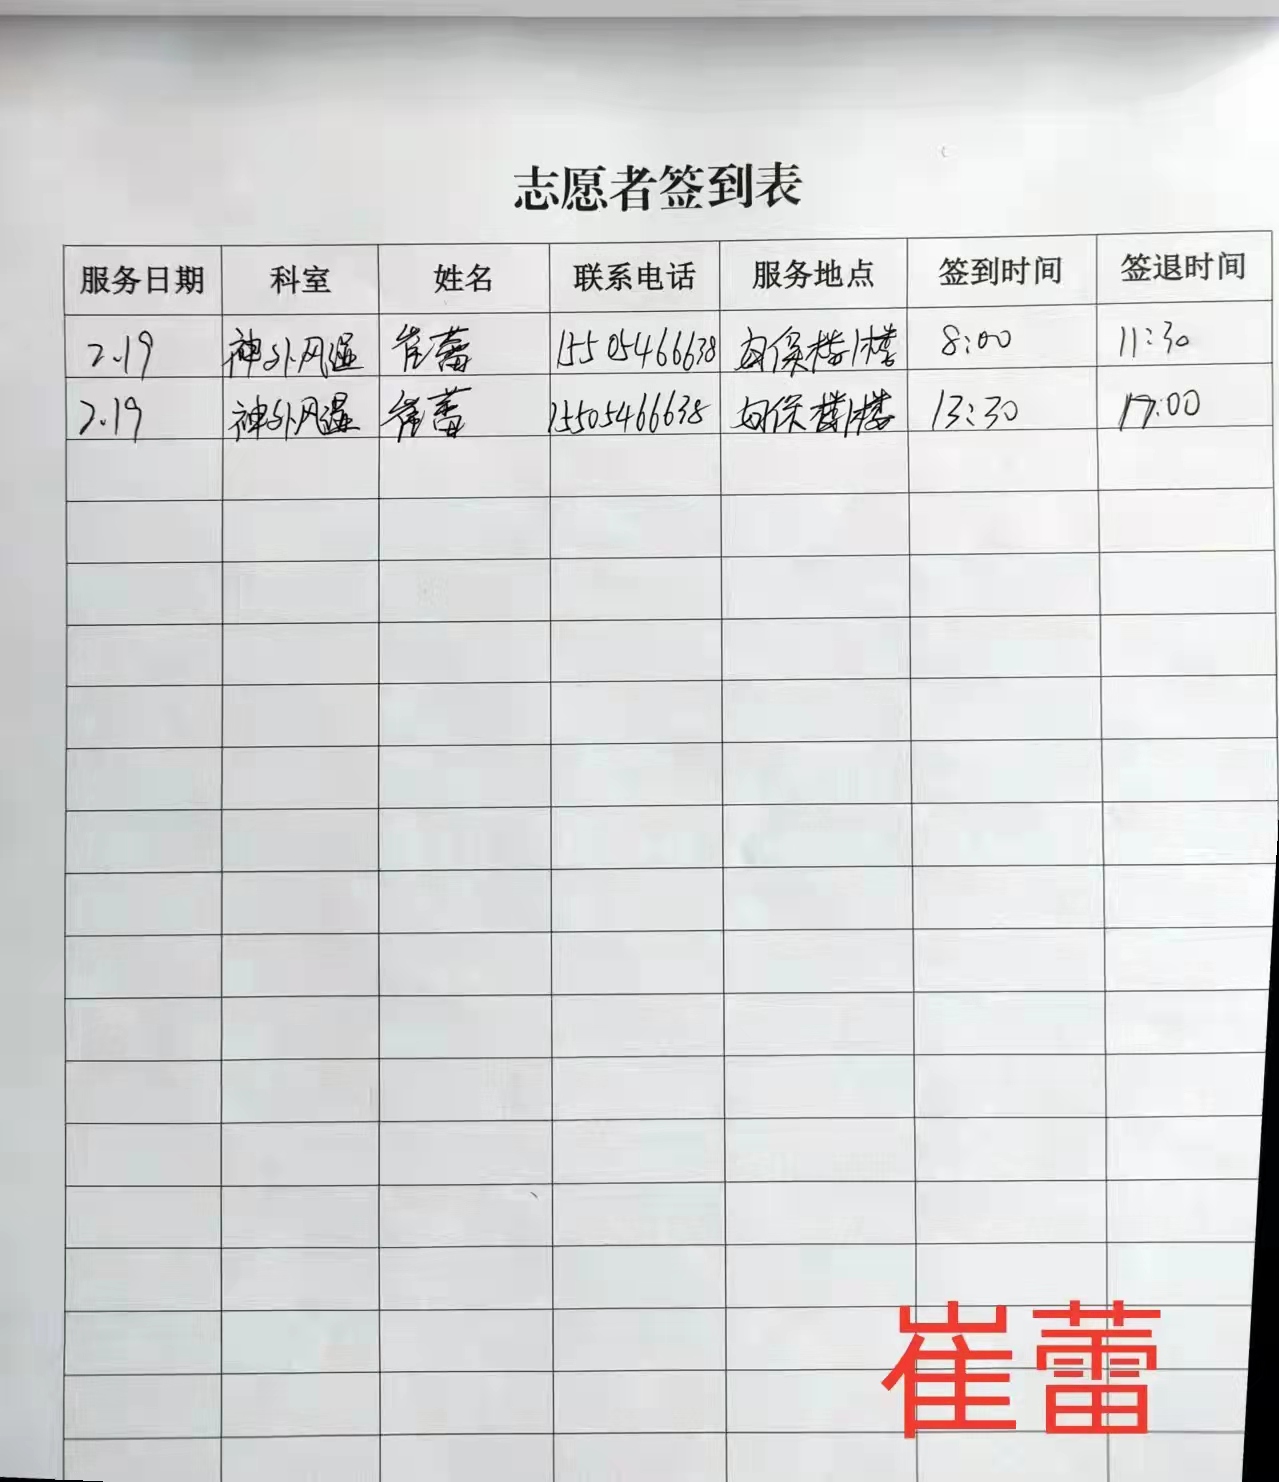 志愿者签到表
服务日期 科室 姓名 联系电话 服务地点 签到时间 签退时间
2.19 神外风湿 崔蕾 15505466638 妇保楼1楼 8:00 11:30
2.19 神外风湿 崔蕾 15505466638 妇保楼1楼 13:30 17:00
崔蕾